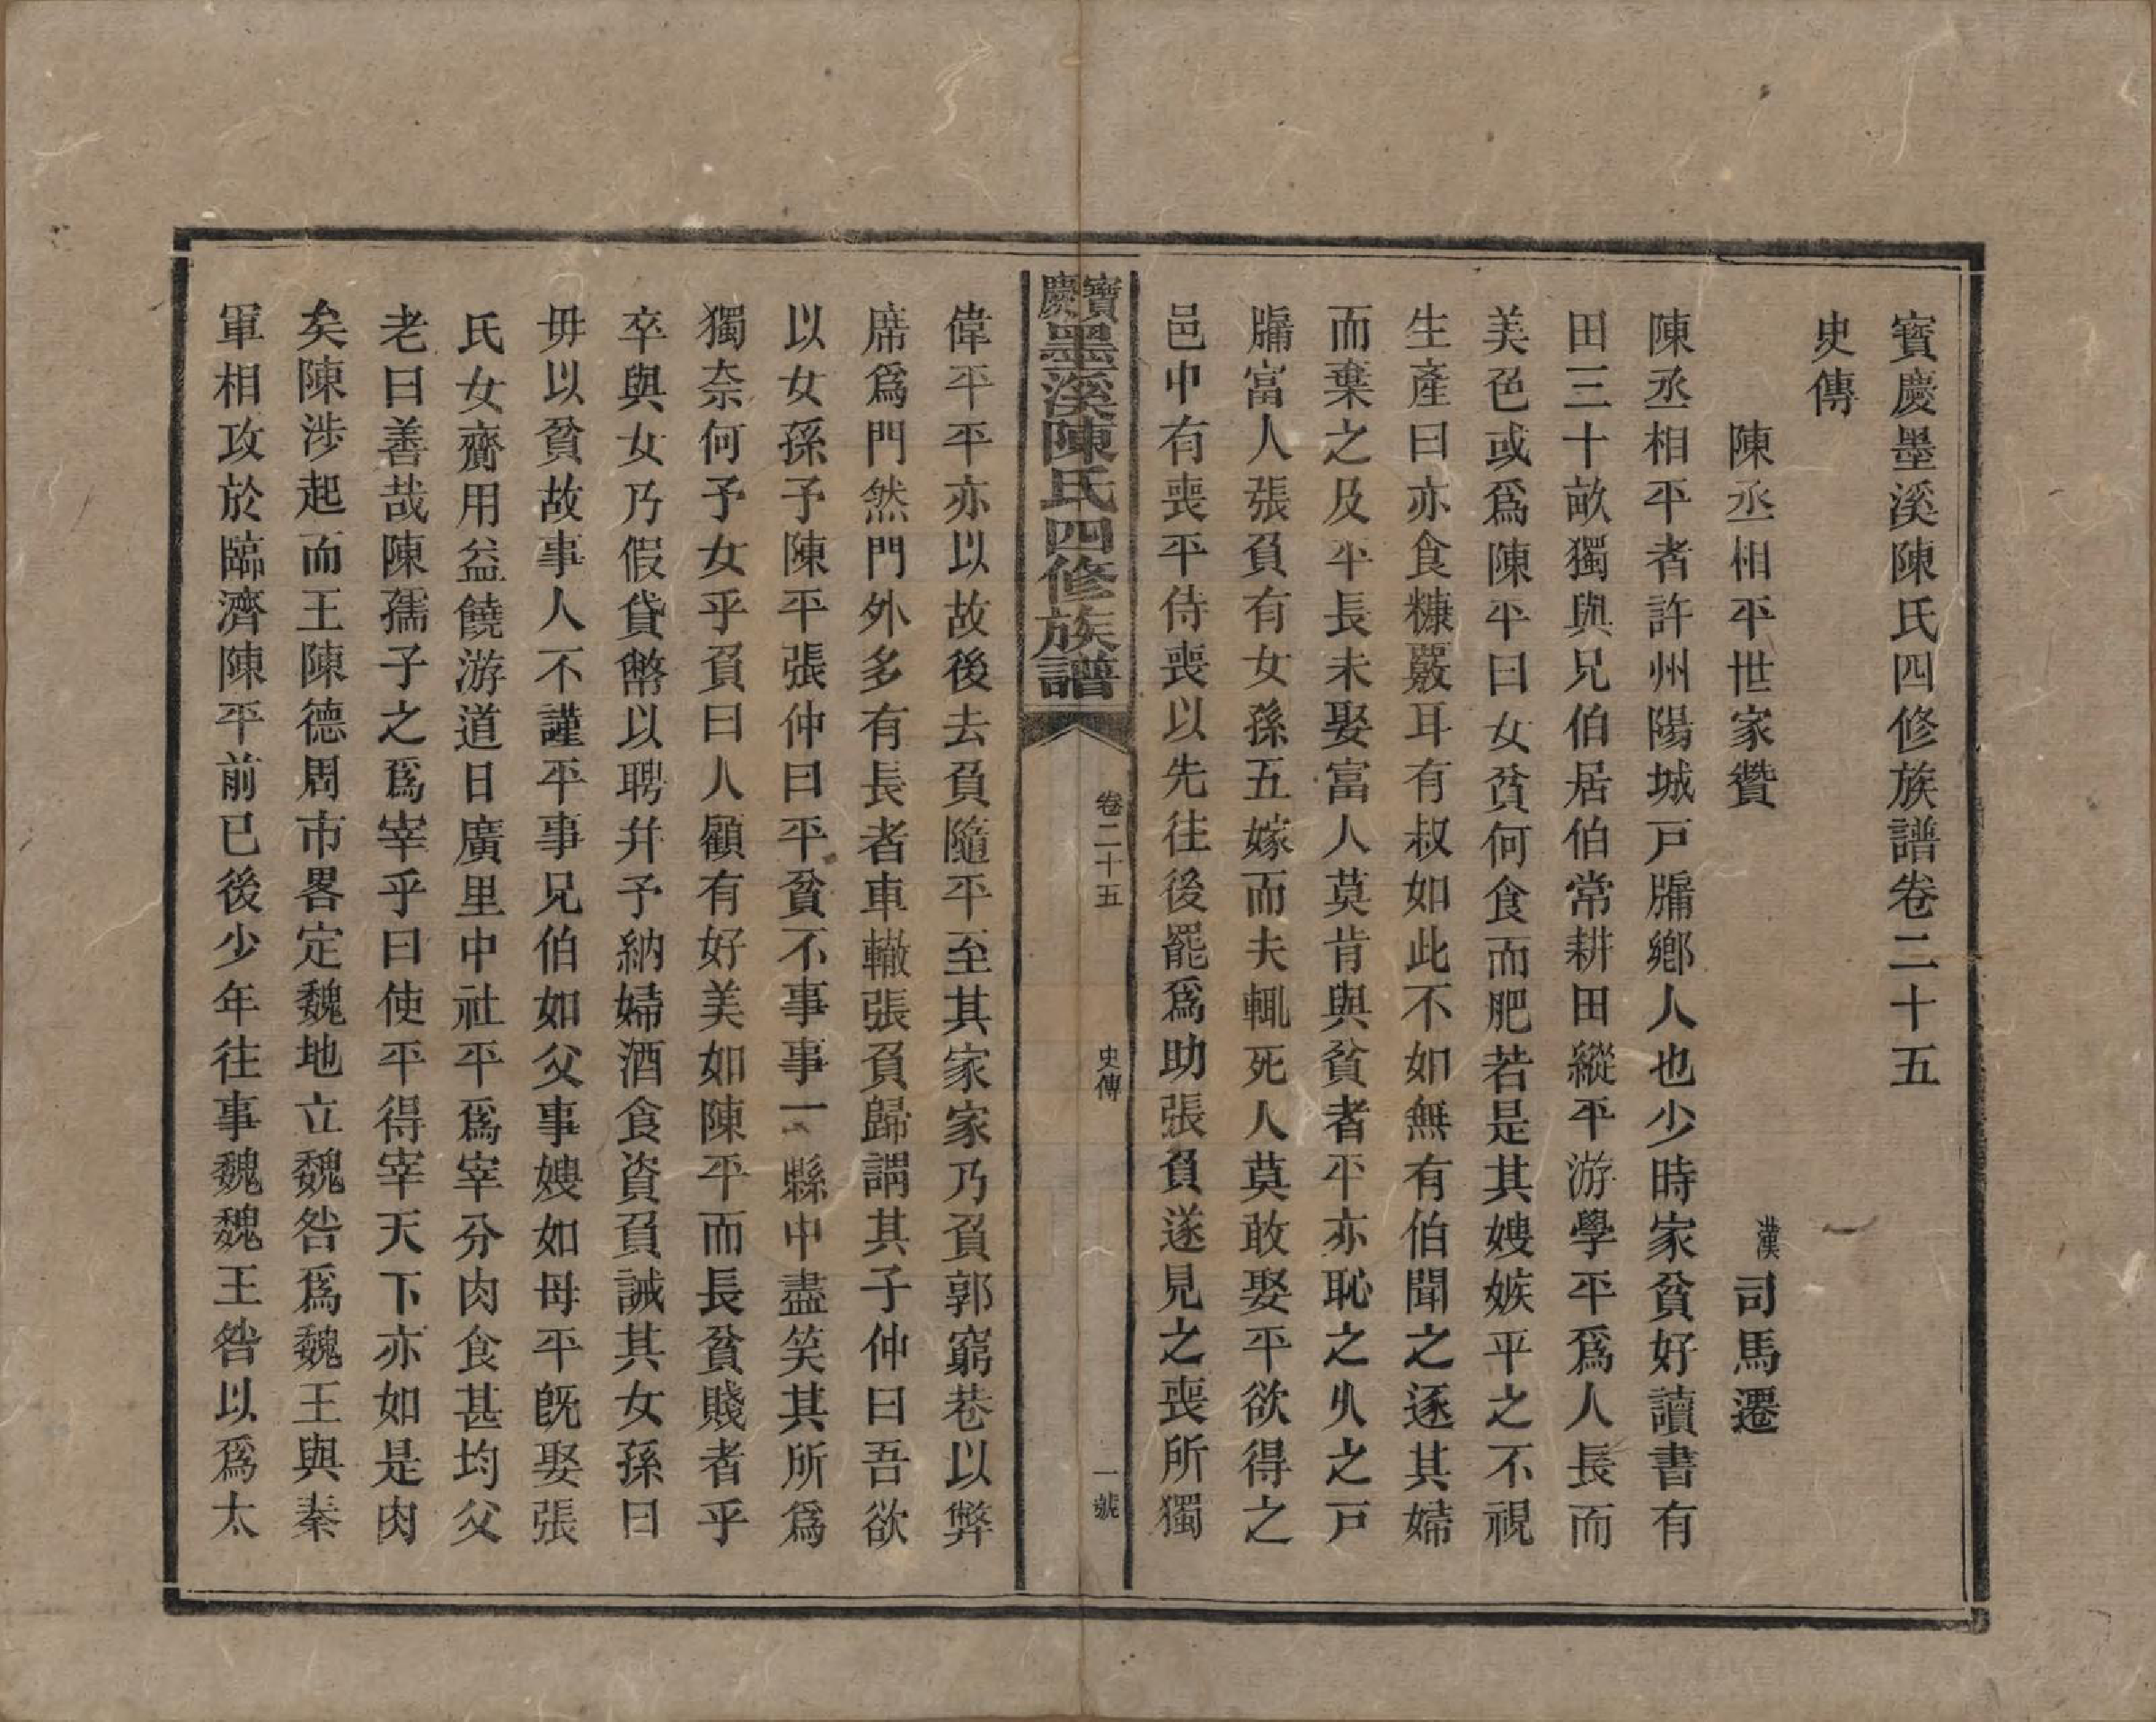 寶慶墨溪陳氏四修族譜卷二十五
史傳
陳丞相平世家贊
漢司馬遷
陳丞相平者許州陽城戸牖鄕人也少時家貧好讀書有
田三十畝獨與兄伯居伯常耕田縱平游學平爲人長而
美色或爲陳平曰女貧何食而肥若是其嫂嫉平之不視
生產曰亦食糠覈耳有叔如此不如無有伯聞之逐其婦
而棄之及平長未娶富人莫肯與貧者平亦恥之乆之戸
牖富人張負有女孫五嫁而夫輒死人莫敢娶平欲得之
邑中有喪平侍喪以先往後罷爲助張負遂見之喪所獨
寶慶墨溪陳氏四修族譜
卷二十五
史傳
一號
偉平平亦以故後去負隨平至其家家乃負郭窮巷以弊
席爲門然門外多有長者車轍張負歸謂其子仲曰吾欲
以女孫予陳平張仲曰平貧不事事一縣中盡笑其所爲
獨奈何予女乎負曰人顧有好美如陳平而長貧賤者乎
卒與女乃假貸幣以聘幷予納婦酒食資負誡其女孫曰
毋以貧故事人不謹平事兄伯如父事嫂如母平旣娶張
氏女齎用益饒游道日廣里中社平爲宰分肉食甚均父
老曰善哉陳孺子之爲宰乎曰使平得宰天下亦如是肉
矣陳涉起而王陳德周市畧定魏地立魏咎爲魏王與秦
軍相攻於臨濟陳平前已後少年往事魏魏王咎以爲太